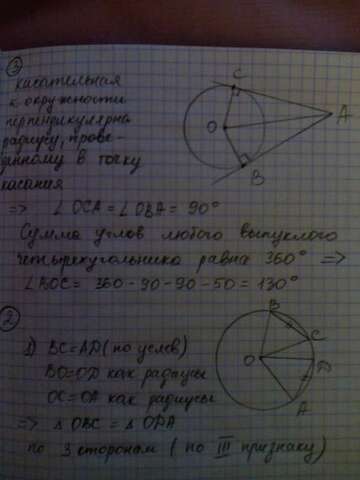 3
касательная
к окружности
перпендикулярна
радиусу, прове-
дённому в точку
касания
=> ∠OCA = ∠OBA = 90°
Сумма углов любого выпуклого
четырехугольника равна 360° =>
∠BOC = 360-90-90-50 = 130°
C
O
A
B
2
1) BC=AD (по услов)
BO=OD как радиусы
OC=OA как радиусы
=> △OBC = △ODA
по 3 сторонам (по III признаку)
B
C
O
D
A